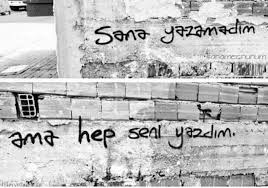 Sana yazamadım
ama hep seni yazdım.